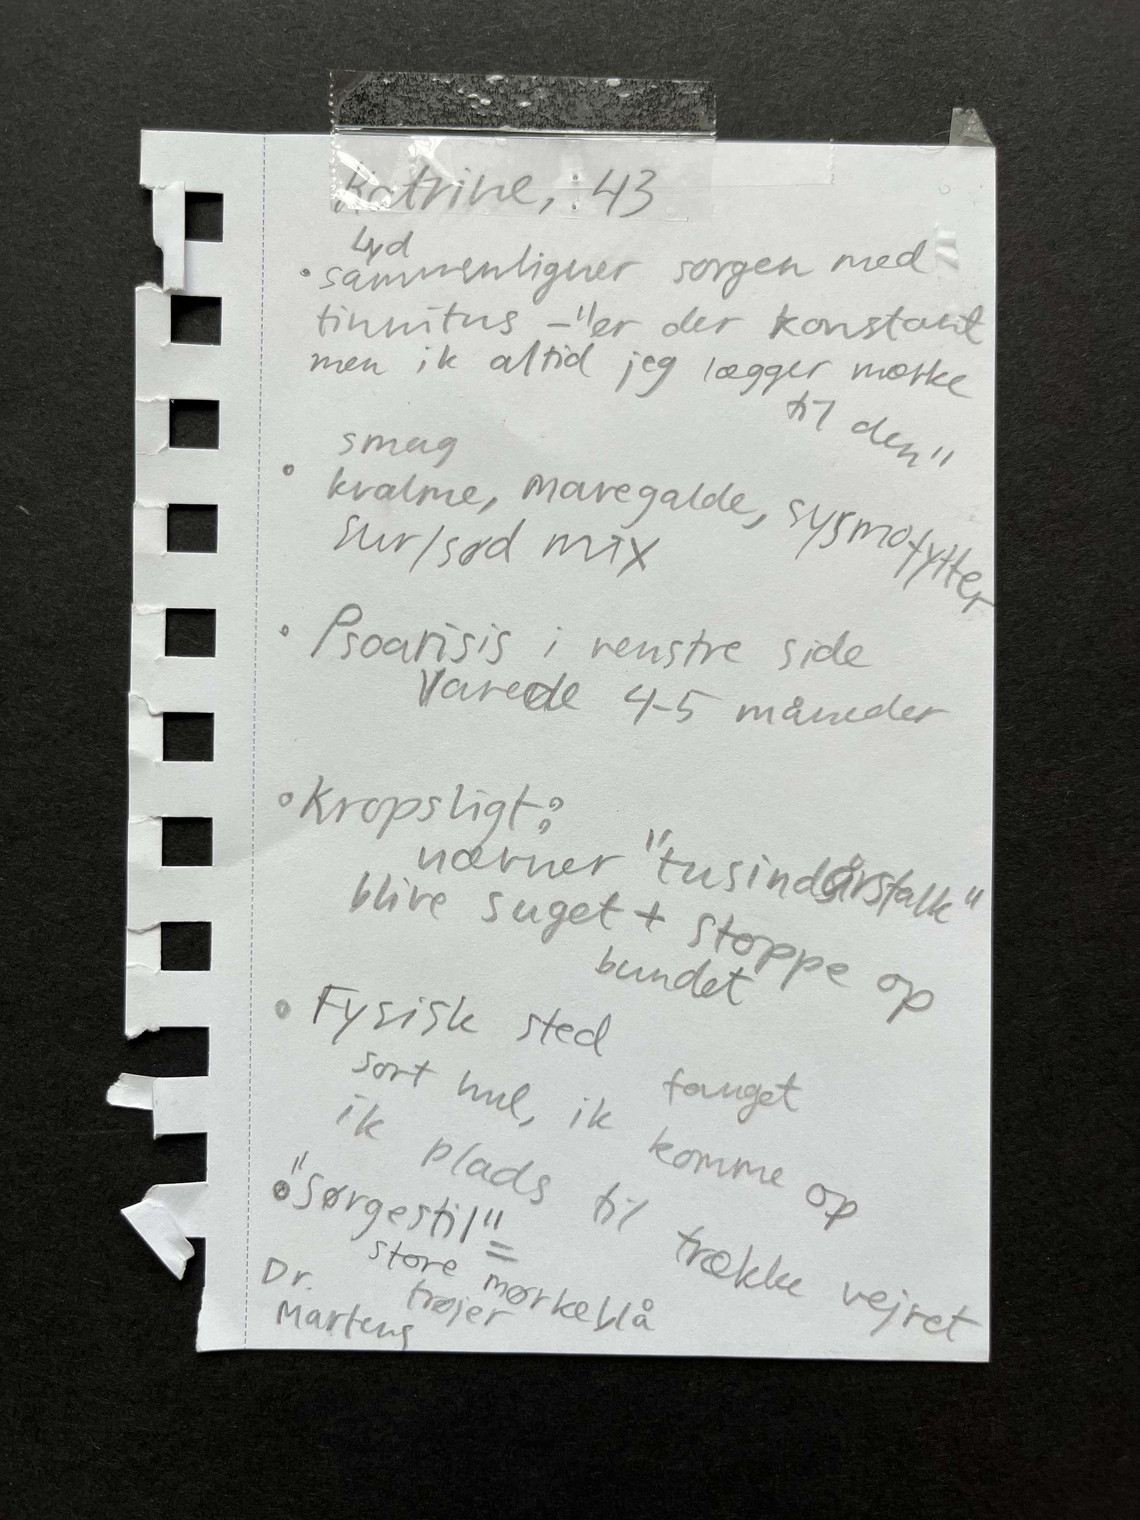 Katrine, 43
Lyd
• sammenligner sorgen med
tinnitus - "er der konstant
men ik altid jeg lægger mærke
til den"
smag
• kvalme, mavegalde, sygmofytter
sur/sød mix
• Psoarisis i venstre side
Varede 4-5 måneder
• Kropsligt:
nævner "tusindårsfalk"
blive suget + stoppe op
bundet
• Fysisk sted
sort hul, ik fanget
ik komme op
plads til trække vejret
• "Sørgestil" =
store mørkeblå
trøjer
Dr.
Martens